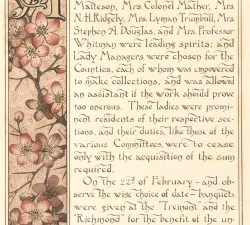 Matteson, Mrs. Colonel Mather, Mrs.
N. H. Ridgely, Mrs. Lyman Trumbull, Mrs.
Stephen A. Douglas, and Mrs. Professor
Whitman were leading spirits; and
Lady Managers were chosen for the
Counties, each of whom was empowered
to make collections, and was allowed
an assistant if the work should prove
too onerous. These ladies were promi-
nent residents of their respective sec-
tions, and their duties, like those of the
various Committees, were to cease
only with the acquisition of the sum
required.
On the 22d of February—and ob-
serve the wise choice of date—banquets
were given at the "Tremont" and the
"Richmond" for the benefit of the un-